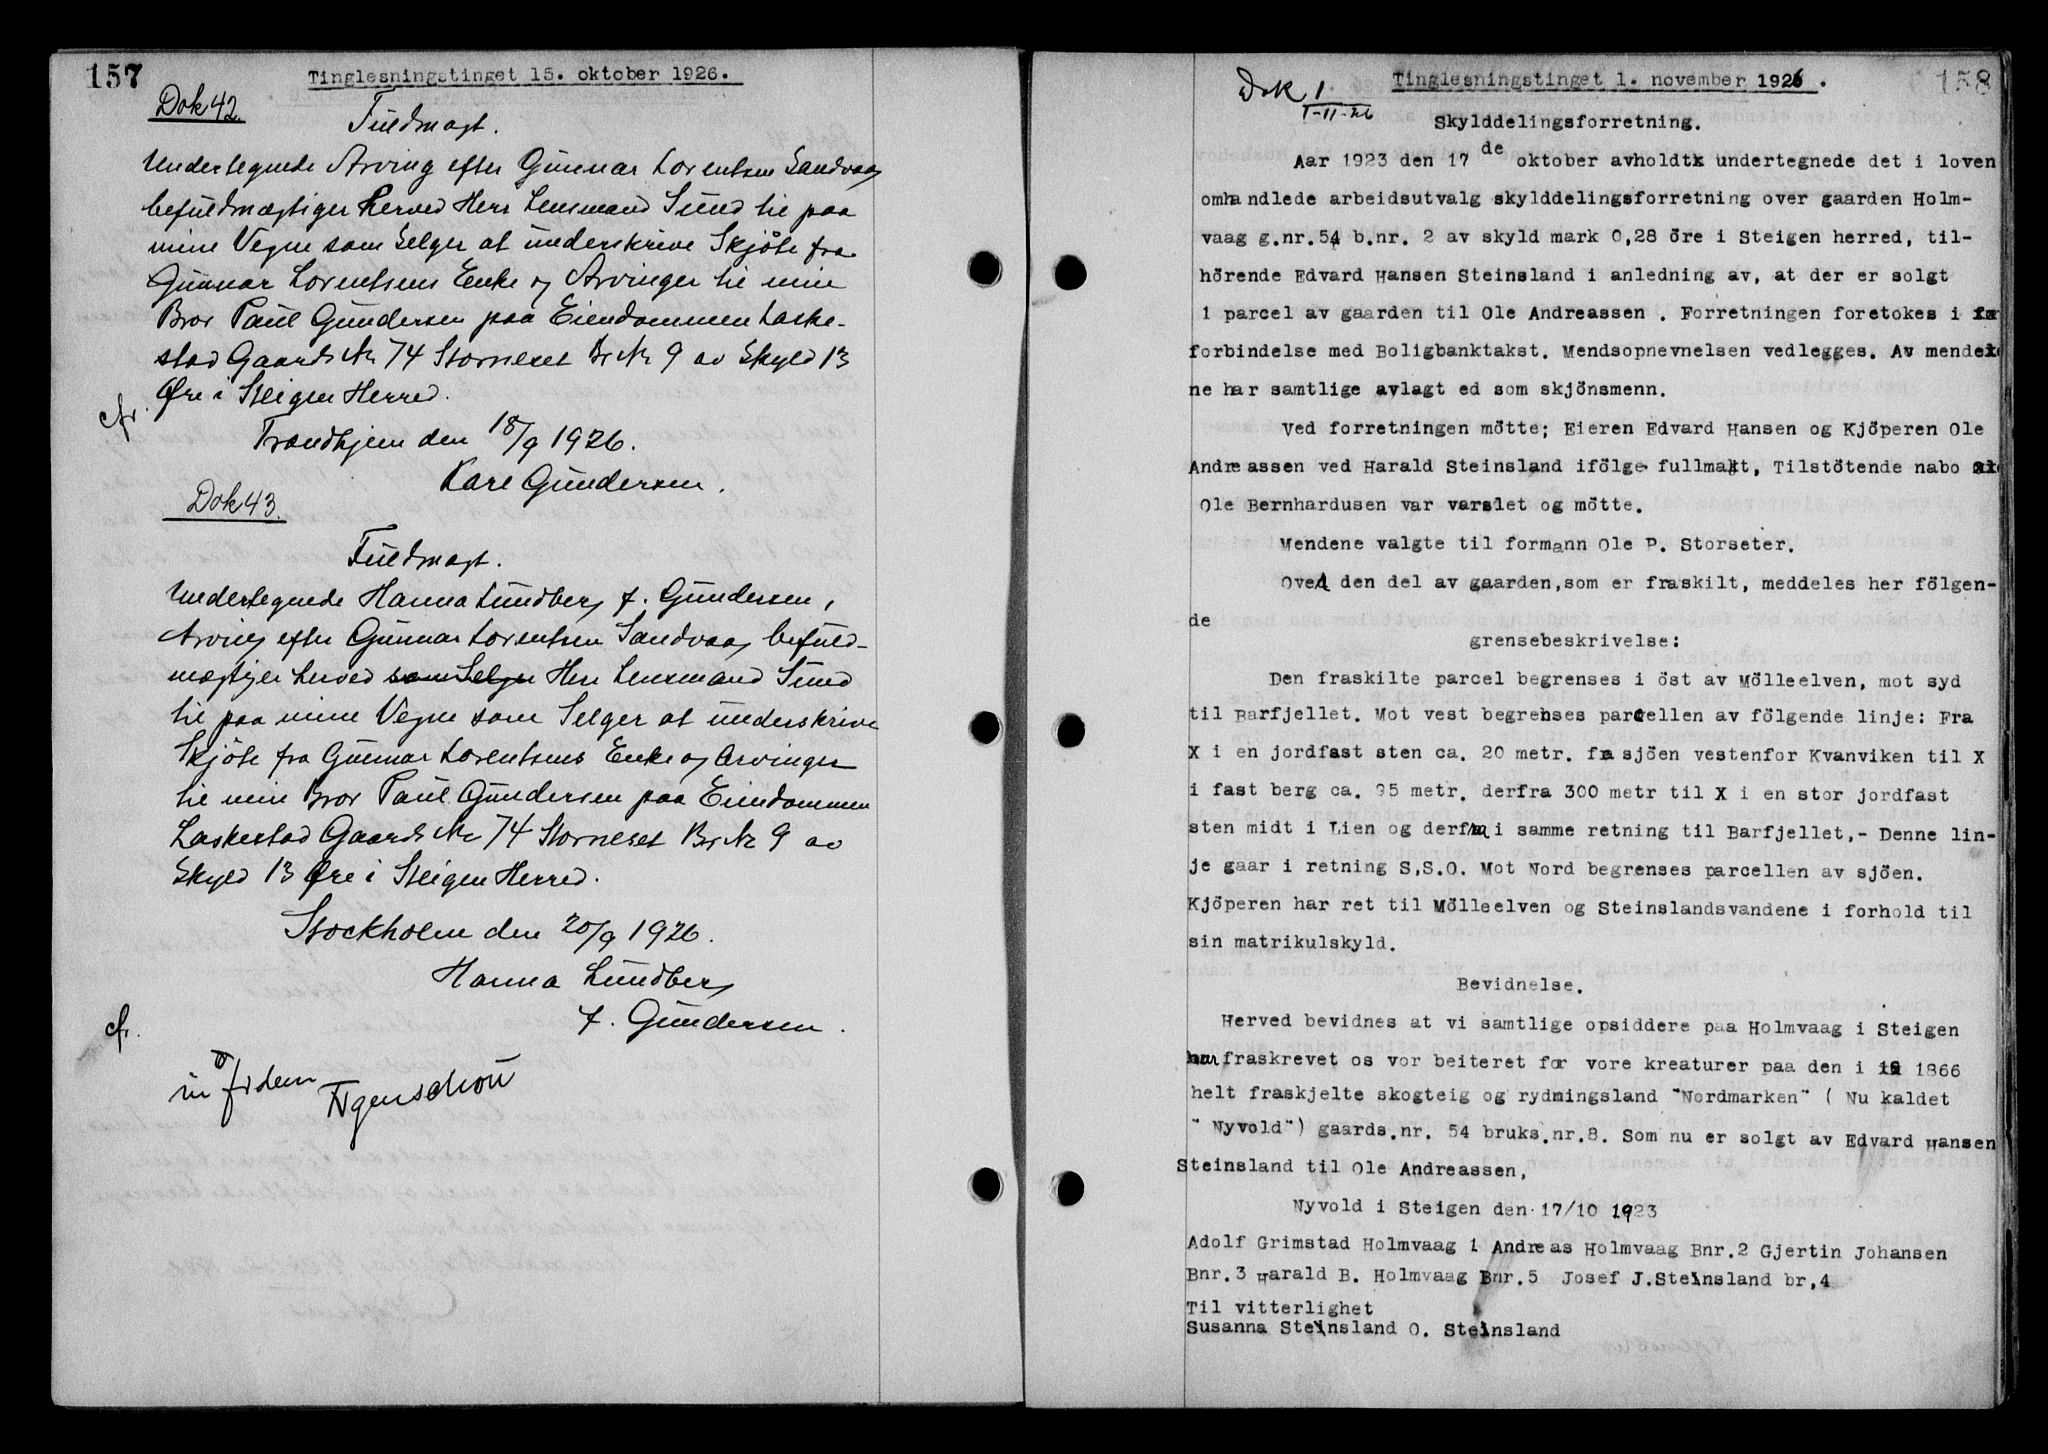 157
Tinglesningstinget 15. oktober 1926.
Dok 42.
Fuldmagt.
Undertegnede Arving efter Gunnar Lorentsen Sandvaag
befuldmægtiger herved Herr Lensmand Sund til paa
mine Vegne som Selger at underskrive Skjöte fra
Gunnar Lorentsens Enke og Arvinger til min
Bror Paul Gundersen paa Eiendommen Laske-
stad Gaards No 74 Storneset Br No 9 av Skyld 13
Øre i Steigen Herred.
cfr.
Trondhjem den 18/9 1926.
Kare Gundersen.
Dok 43.
Fuldmagt.
Undertegnede Hanna Lundberg f. Gundersen,
Arving efter Gunnar Lorentsen Sandvaag befuld-
mægtiger herved som Selger Herr Lensmand Sund
til paa mine Vegne som Selger at underskrive
Skjöte fra Gunnar Lorentsens Enke og Arvinger
til min Bror Paul Gundersen paa Eiendommen
Laskestad Gaards No 74 Storneset Br No 9 av
Skyld 13 Øre i Steigen Herred.
Stockholm den 20/9 1926.
Hanna Lundberg
f. Gundersen.
cfr.
in fidem
158
Tinglesningstinget 1. november 1926.
Dok 1
1-11-26
Skylddelingsforretning.
Aar 1923 den 17 de oktober avholdtx undertegnede det i loven
omhandlede arbeidsutvalg skylddelingsforretning over gaarden Holm-
vaag g.nr.54 b.nr. 2 av skyld mark 0,28 öre i Steigen herred, til-
hörende Edvard Hansen Steinsland i anledning av, at der er solgt
1 parcel av gaarden til Ole Andreassen . Forretningen foretokes i
forbindelse med Boligbanktakst. Mendsopnevnelsen vedlegges. Av mende
ne har samtlige avlagt ed som skjönsmenn.
Ved forretningen mötte; Eieren Edvard Hansen og Kjöperen Ole
Andreassen ved Harald Steinsland ifölge fullmakt, Tilstötende nabo
Ole Bernhardusen var varslet og mötte.
Mendene valgte til formann Ole P. Storseter.
Oved den del av gaarden,som er fraskilt, meddeles her fölgen-
de
grensebeskrivelse:
Den fraskilte parcel begrenses i öst av Mölleelven, mot syd
til Barfjellet. Mot vest begrenses parcellen av fölgende linje: Fra
X i en jordfast sten ca. 20 metr. fra sjöen vestenfor Kvanviken til X
i fast berg ca. 95 metr. derfra 300 metr til X i en stor jordfast
sten midt i Lien og derfra i samme retning til Barfjellet,- Denne lin-
je gaar i retning S.S.O. Mot Nord begrenses parcellen av sjöen.
Kjöperen har ret til Mölleelven og Steinslandsvandene i forhold til
sin matrikulskyld.
Bevidnelse.
Herved bevidnes at vi samtlige opsiddere paa Holmvaag i Steigen
har fraskrevet os vor beiteret for vore kreaturer paa den i 1866
helt fraskjelte skogteig og rydningsland "Nordmarken" ( Nu kaldet
" Nyvold") gaards.nr. 54 bruks.nr.8. Som nu er solgt av Edvard Hansen
Steinsland til Ole Andreassen,
Nyvold i Steigen den 17/10 1923
Adolf Grimstad Holmvaag 1 Andreas Holmvaag Bnr.2 Gjertin Johansen
Bnr.3 Harald B. Holmvaag Bnr.5 Josef J.Steinsland br,4
Til vitterlighet
Susanna Steinsland O. Steinsland